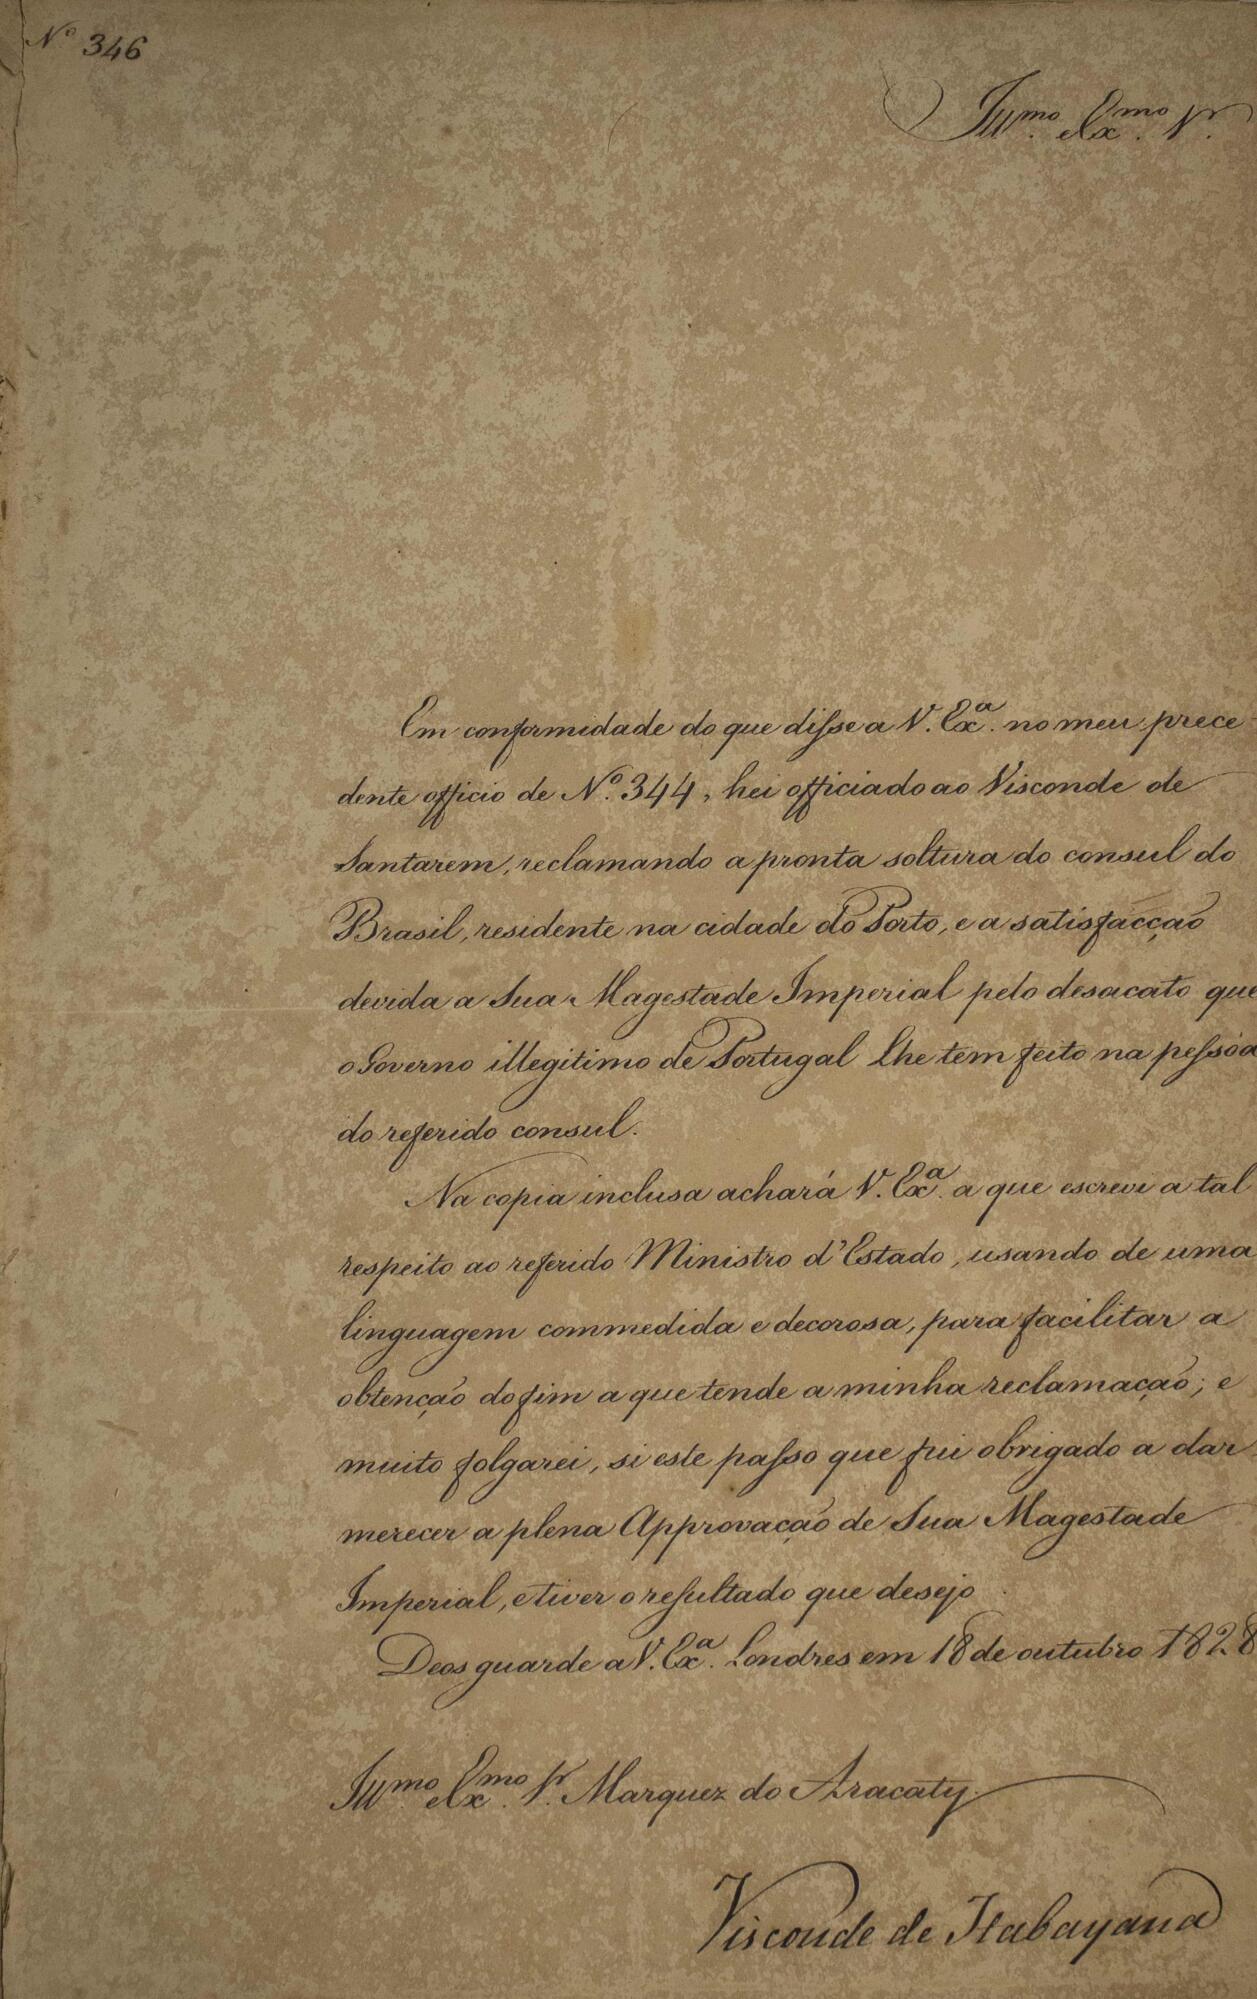 Nº 346
Illmo. Exmo. Sr.
Em conformidade do que disse a V. Exª. no meu prece-
dente officio de Nº. 344, hei officiado ao Visconde de
Santarem, reclamando a pronta soltura do consul do
Brasil, residente na cidade do Porto, e a satisfacção
devida a Sua Magestade Imperial pelo desacato que
o Governo illegitimo de Portugal lhe tem feito na pessôa
do referido consul.
Na copia inclusa achará V. Exª. a que escrevi a tal
respeito ao referido Ministro d'Estado, usando de uma
linguagem commedida e decorosa, para facilitar a
obtenção do fim a que tende a minha reclamação; e
muito folgarei, si este passo que fui obrigado a dar
merecer a plena Approvação de Sua Magestade
Imperial, e tiver o resultado que desejo.
Deos guarde a V. Exª. Londres em 18 de outubro 1828
Illmo. Exmo. Sr. Marquez do Aracaty
Visconde de Itabayana